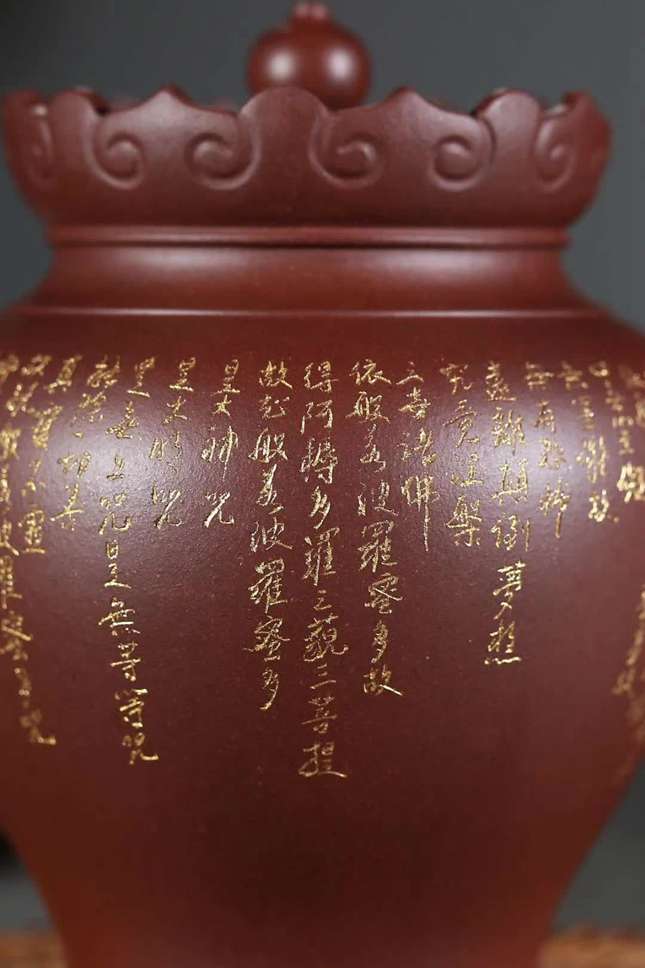 無罣礙故
無有恐怖
遠離顛倒夢想
究竟涅槃
三世諸佛
依般若波羅蜜多故
得阿耨多羅三藐三菩提
故知般若波羅蜜多
是大神咒
是大明咒
是無上咒是無等等咒
能除一切苦
真實不虛
故說般若波羅蜜多咒